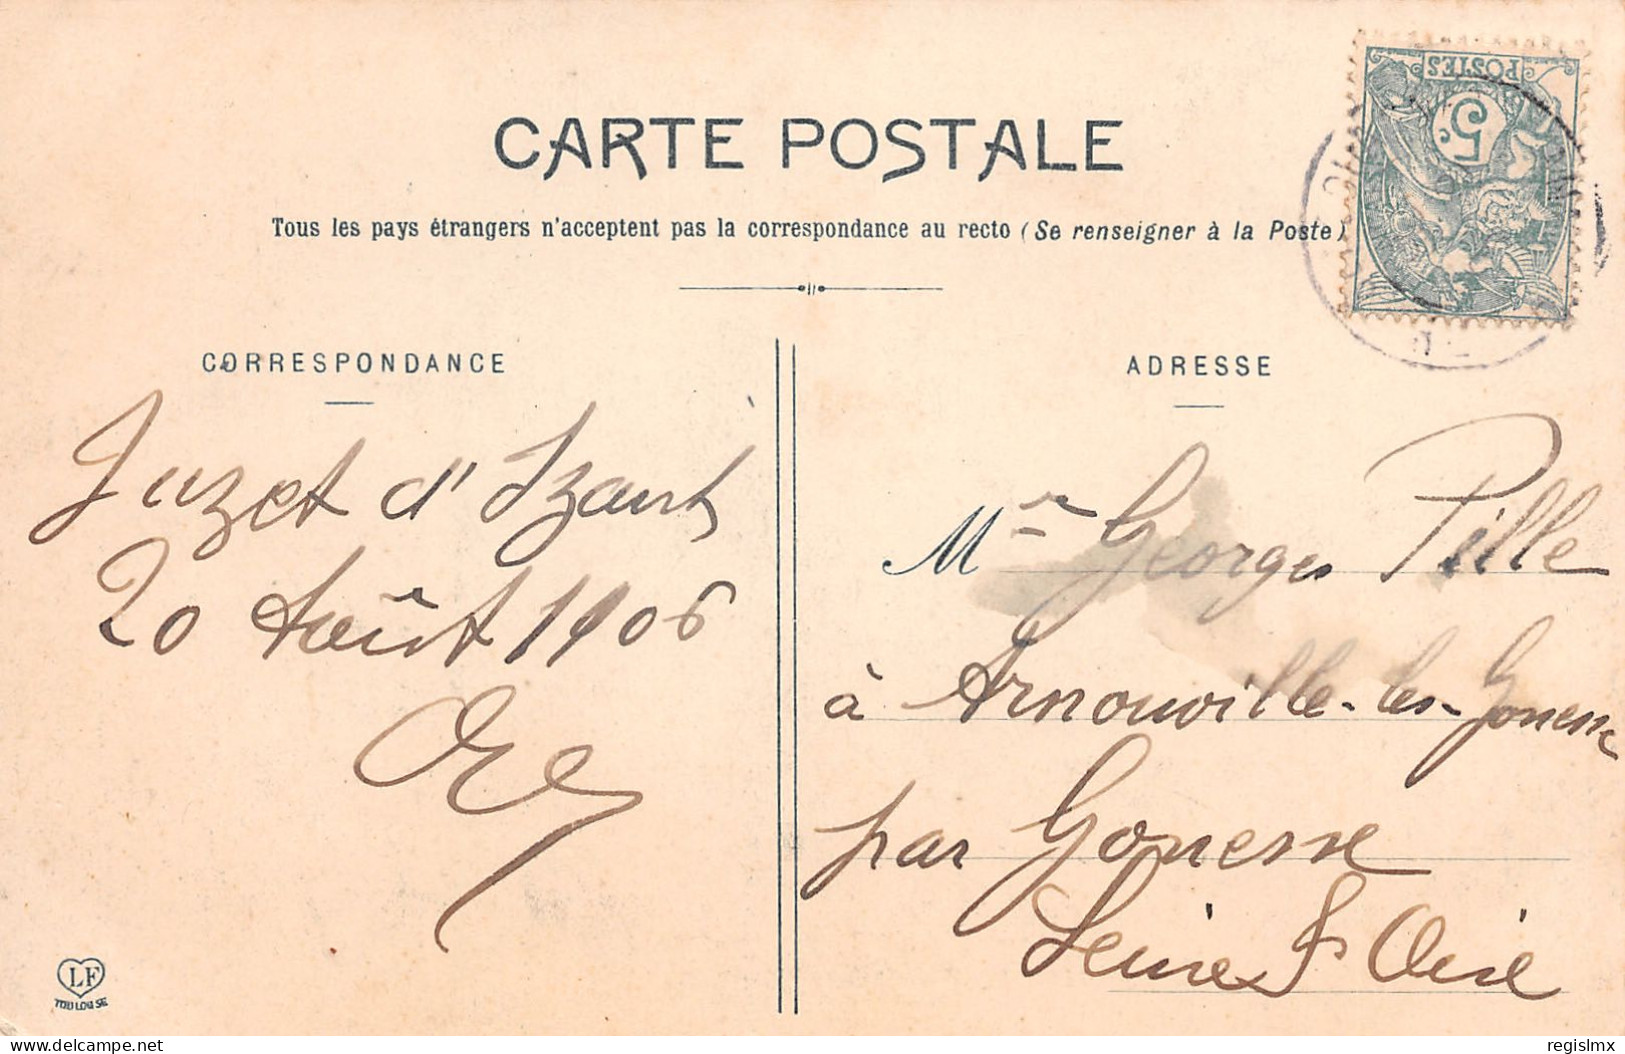 CARTE POSTALE
POSTES
5c
Tous les pays étrangers n'acceptent pas la correspondance au recto (Se renseigner à la Poste)
CORRESPONDANCE
Juzet d'Izaut
20 Août 1906
ADRESSE
Mr Georges Pille
à Arnouville-les-Gonesse
par Gonesse
Seine & Oise
LF
TOULOUSE
delcampe.net
regislmx